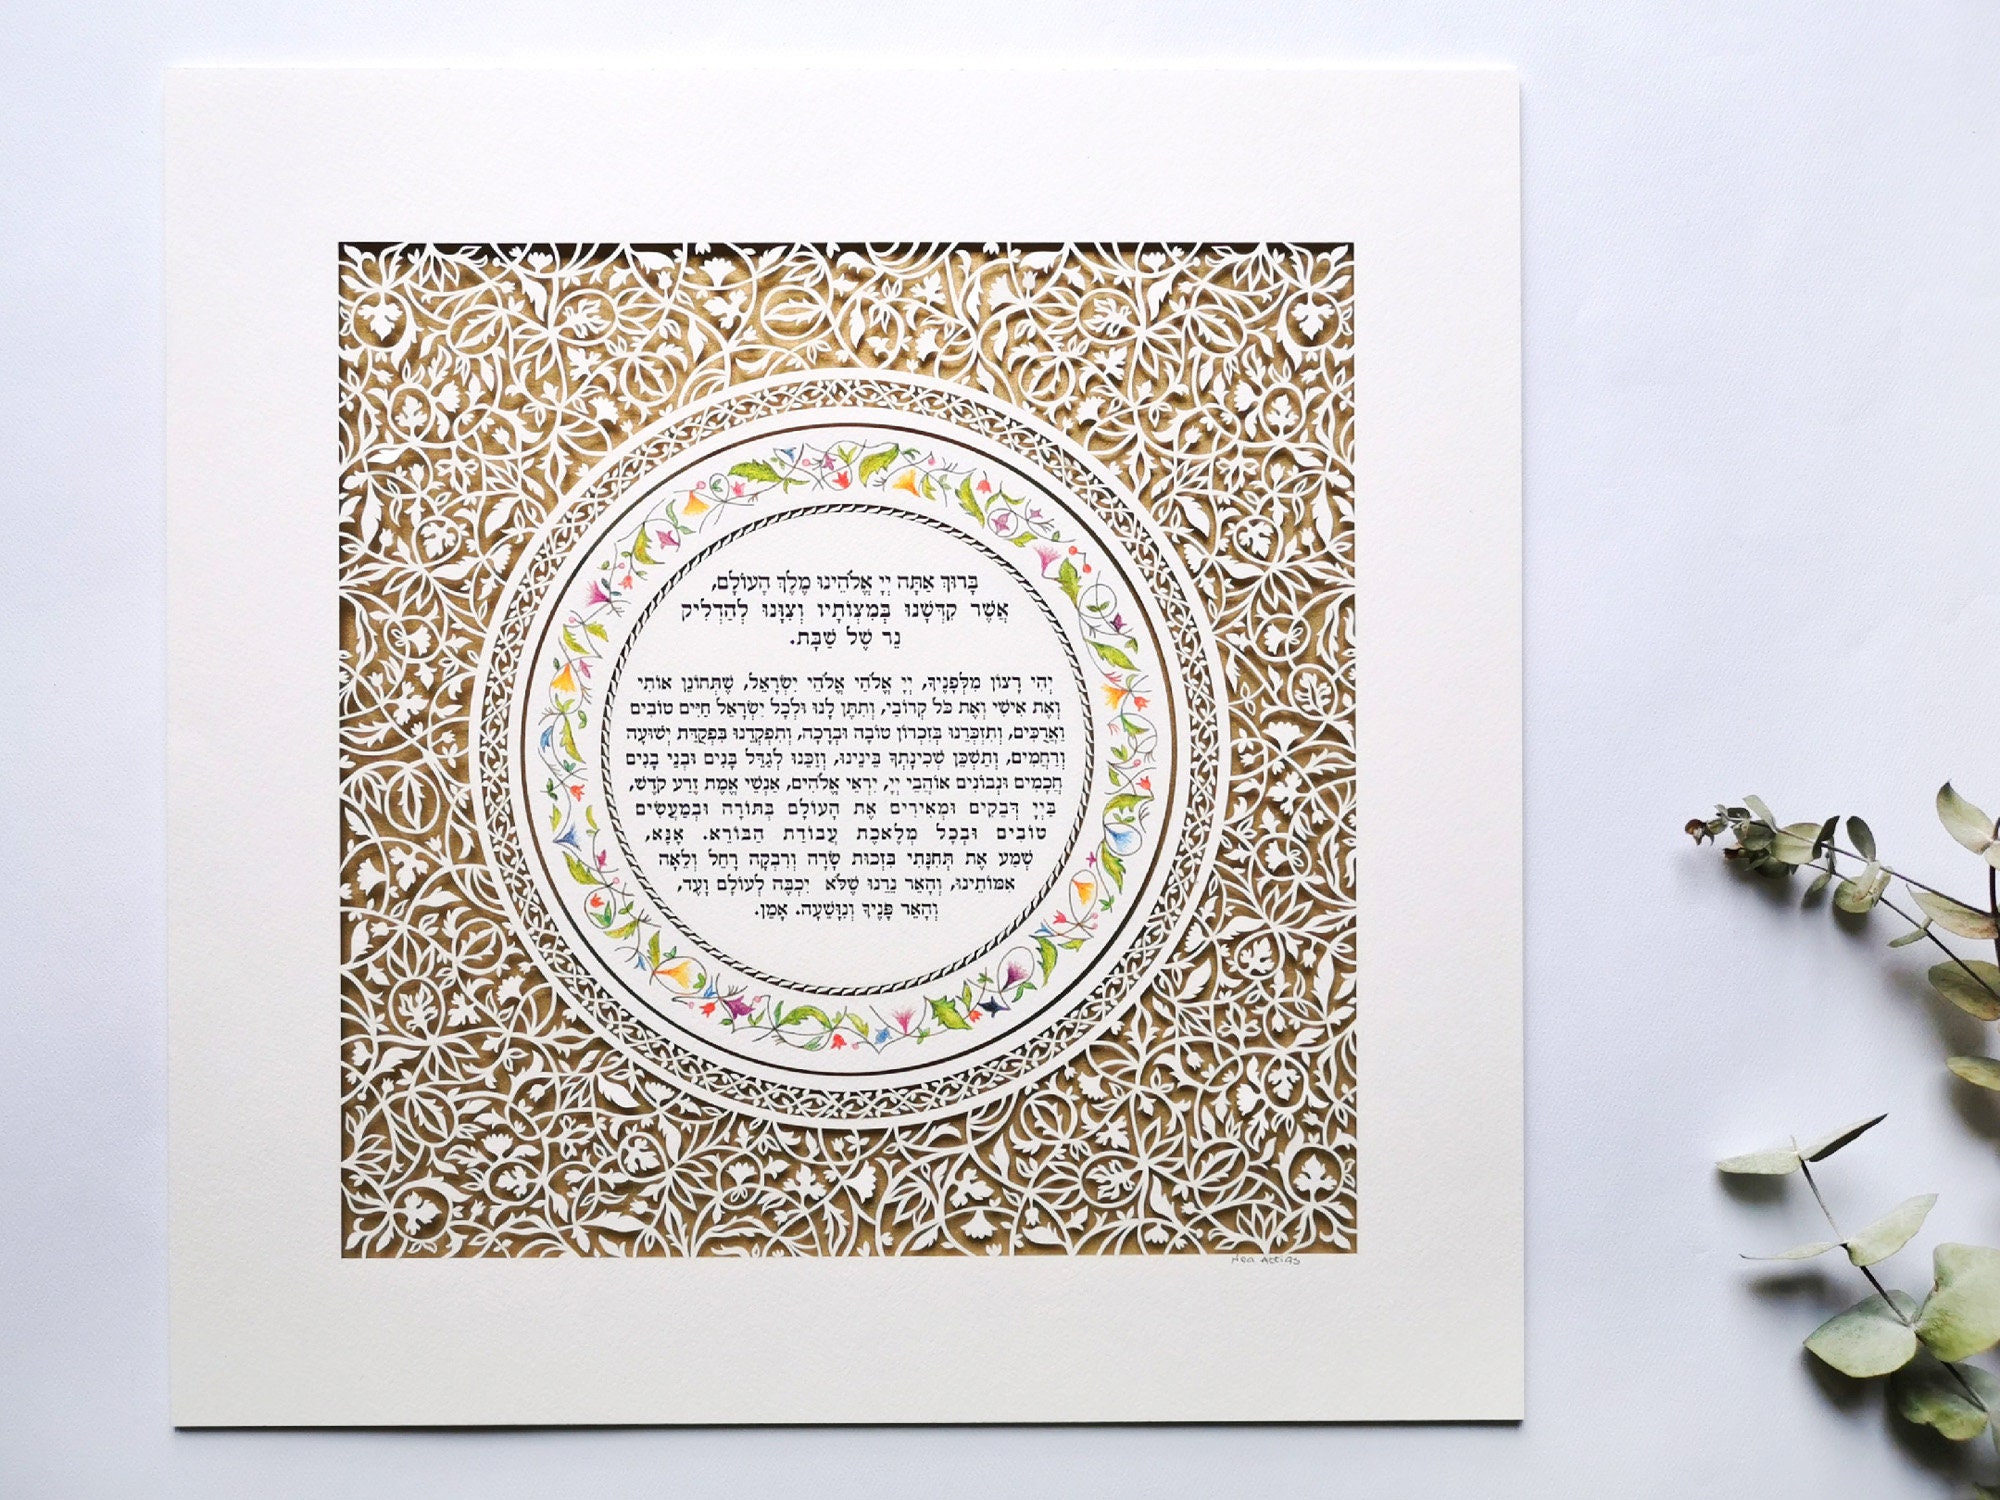 בָּרוּךְ אַתָּה יְיָ אֱלֹהֵינוּ מֶלֶךְ הָעוֹלָם,
אֲשֶׁר קִדְּשָׁנוּ בְּמִצְוֹתָיו וְצִוָּנוּ לְהַדְלִיק
נֵר שֶׁל שַׁבָּת.
יְהִי רָצוֹן מִלְּפָנֶיךָ, יְיָ אֱלֹהַי אֱלֹהֵי יִשְׂרָאֵל, שֶׁתְּחוֹנֵן אוֹתִי
וְאֶת אִישִׁי וְאֶת כֹּל קְרוֹבַי, וְתִתֶּן לָנוּ וּלְכָל יִשְׂרָאֵל חַיִּים טוֹבִים
וַאֲרֻכִּים, וְתִזְכְּרֵנוּ בְּזִכְרוֹן טוֹבָה וּבְרָכָה, וְתִפְקְדֵנוּ בִּפְקֻדַּת יְשׁוּעָה
וְרַחֲמִים, וְתַשְׁכֵּן שְׁכִינָתְךָ בֵּינֵינוּ, וְזַכֵּנוּ לְגַדֵּל בָּנִים וּבְנֵי בָנִים
חֲכָמִים וּנְבוֹנִים אוֹהֲבֵי יְיָ, יִרְאֵי אֱלֹהִים, אַנְשֵׁי אֱמֶת זֶרַע קֹדֶשׁ,
בַּיְיָ דְּבֵקִים וּמְאִירִים אֶת הָעוֹלָם בְּתּוֹרָה וּבְמַעֲשִׂים
טוֹבִים וּבְכָל מְלֶאכֶת עֲבוֹדַת הַבּוֹרֵא. אָנָּא,
שְׁמַע אֶת תְּחִנָּתִי בִּזְכוּת שָׂרָה וְרִבְקָה רָחֵל וְלֵאָה
אִמּוֹתֵינוּ, וְהָאֵר נֵרֵנוּ שֶׁלֹּא יִכְבֶּה לְעוֹלָם וָעֶד,
וְהָאֵר פָּנֶיךָ וְנִוָּשֵׁעָה. אָמֵן.
Noa Attias